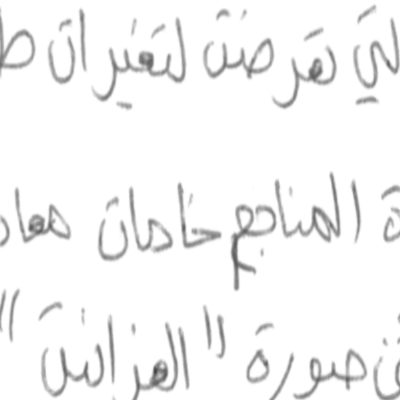 لتي تعرضت لتغيرات ط
ة المناجم خامات معاد
صورة " الغرانيت "